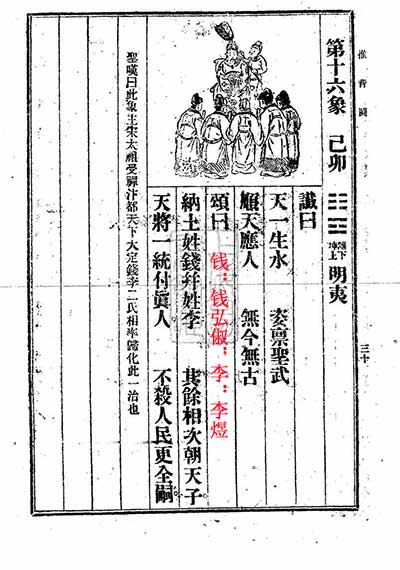 推背圖
三十
第十六象 己卯 離下坤上 明夷
讖曰
天一生水 姿禀聖武
順天應人 無今無古
頌曰
钱：钱弘俶；李：李煜
納土姓錢并姓李 其餘相次朝天子
天將一統付眞人 不殺人民更全嗣
聖嘆曰此象主宋太祖受禪汴都天下大定錢李二氏相率歸化此一治也